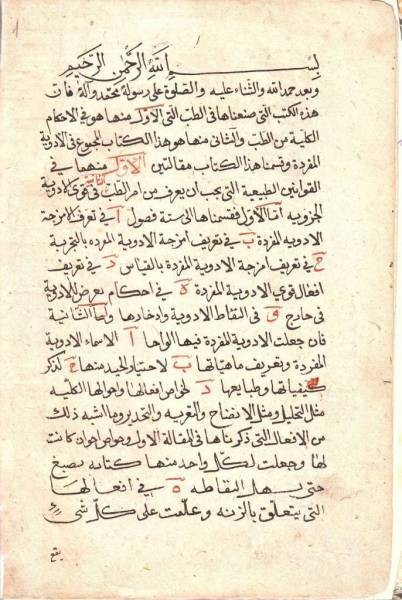 بسم الله الرحمن الرحيم
وبعد حمد الله والثناء عليه والصلوة على رسوله محمد وآله فان
هذه الكتب التي صنفناها في الطب التي الاول منها هو في الاحكام
الكلية من الطب والثاني منها هو هذا الكتاب المجموع في الادوية
المفردة وقسمنا هذا الكتاب مقالتين الاول منهما في
القوانين الطبيعية التي يجب ان يعرف من امر الطب في قوي الادوية
الجزويه اما الاول فقسمناها الى ستة فصول ا في تعرف امزجة
الادويه المفردة ب في تعريف امزجة الادوية المفرده بالتجربة
ج في تعريف امزجة الادوية المفردة بالقياس د في تعريف
افعال قوي الادوية المفردة ه في احكام يعرض للادوية
في خارج و في التقاط الادوية وادخارها واما الثانية
فان جعلت الادوية المفردة فيها الواحا ا الاسماء الادوية
المفردة وتعريف ماهياتها ب لاختيار الجيد منها ج لذكر
كيفياتها وطبايعها د لخواص افعالها واحوالها الكليه
مثل التحليل ومثل الانضاج والتغريه والتخدير وما اشبه ذلك
من الافعال التي ذكرناها في المقالة الاولى وخواص اخوان كانت
لها وجعلت لكل واحد منها كتابه بصبغ
حتى يسهل التقاطه ه في افعالها
التي يتعلق بالزنه وعلمت على كل شي
يقع
1